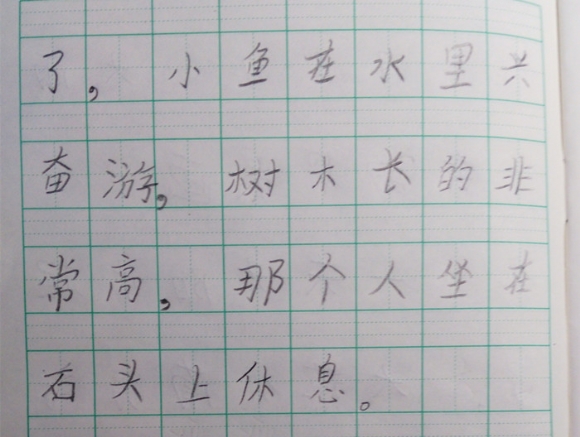 了，小鱼在水里兴
奋游，树木长的非
常高，那个人坐在
石头上休息。